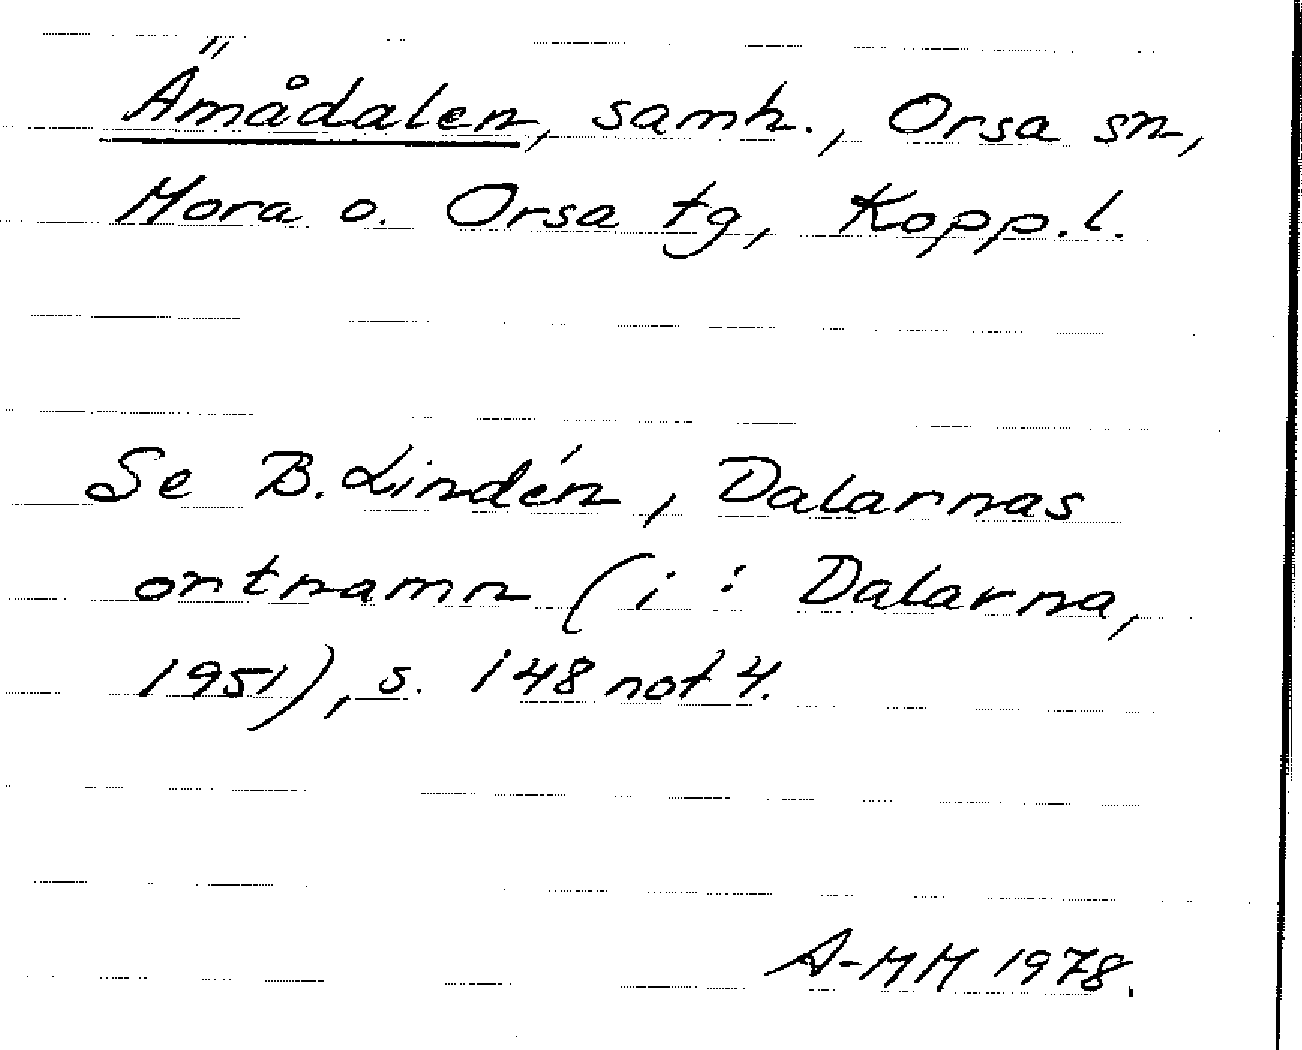 Ämådalen, samh., Orsa sn,
Mora o. Orsa tg, Kopp.l.
Se B. Lindén, Dalarnas
ortnamn (i: Dalarna,
1951), s. 148 not 4.
A-MM 1978.